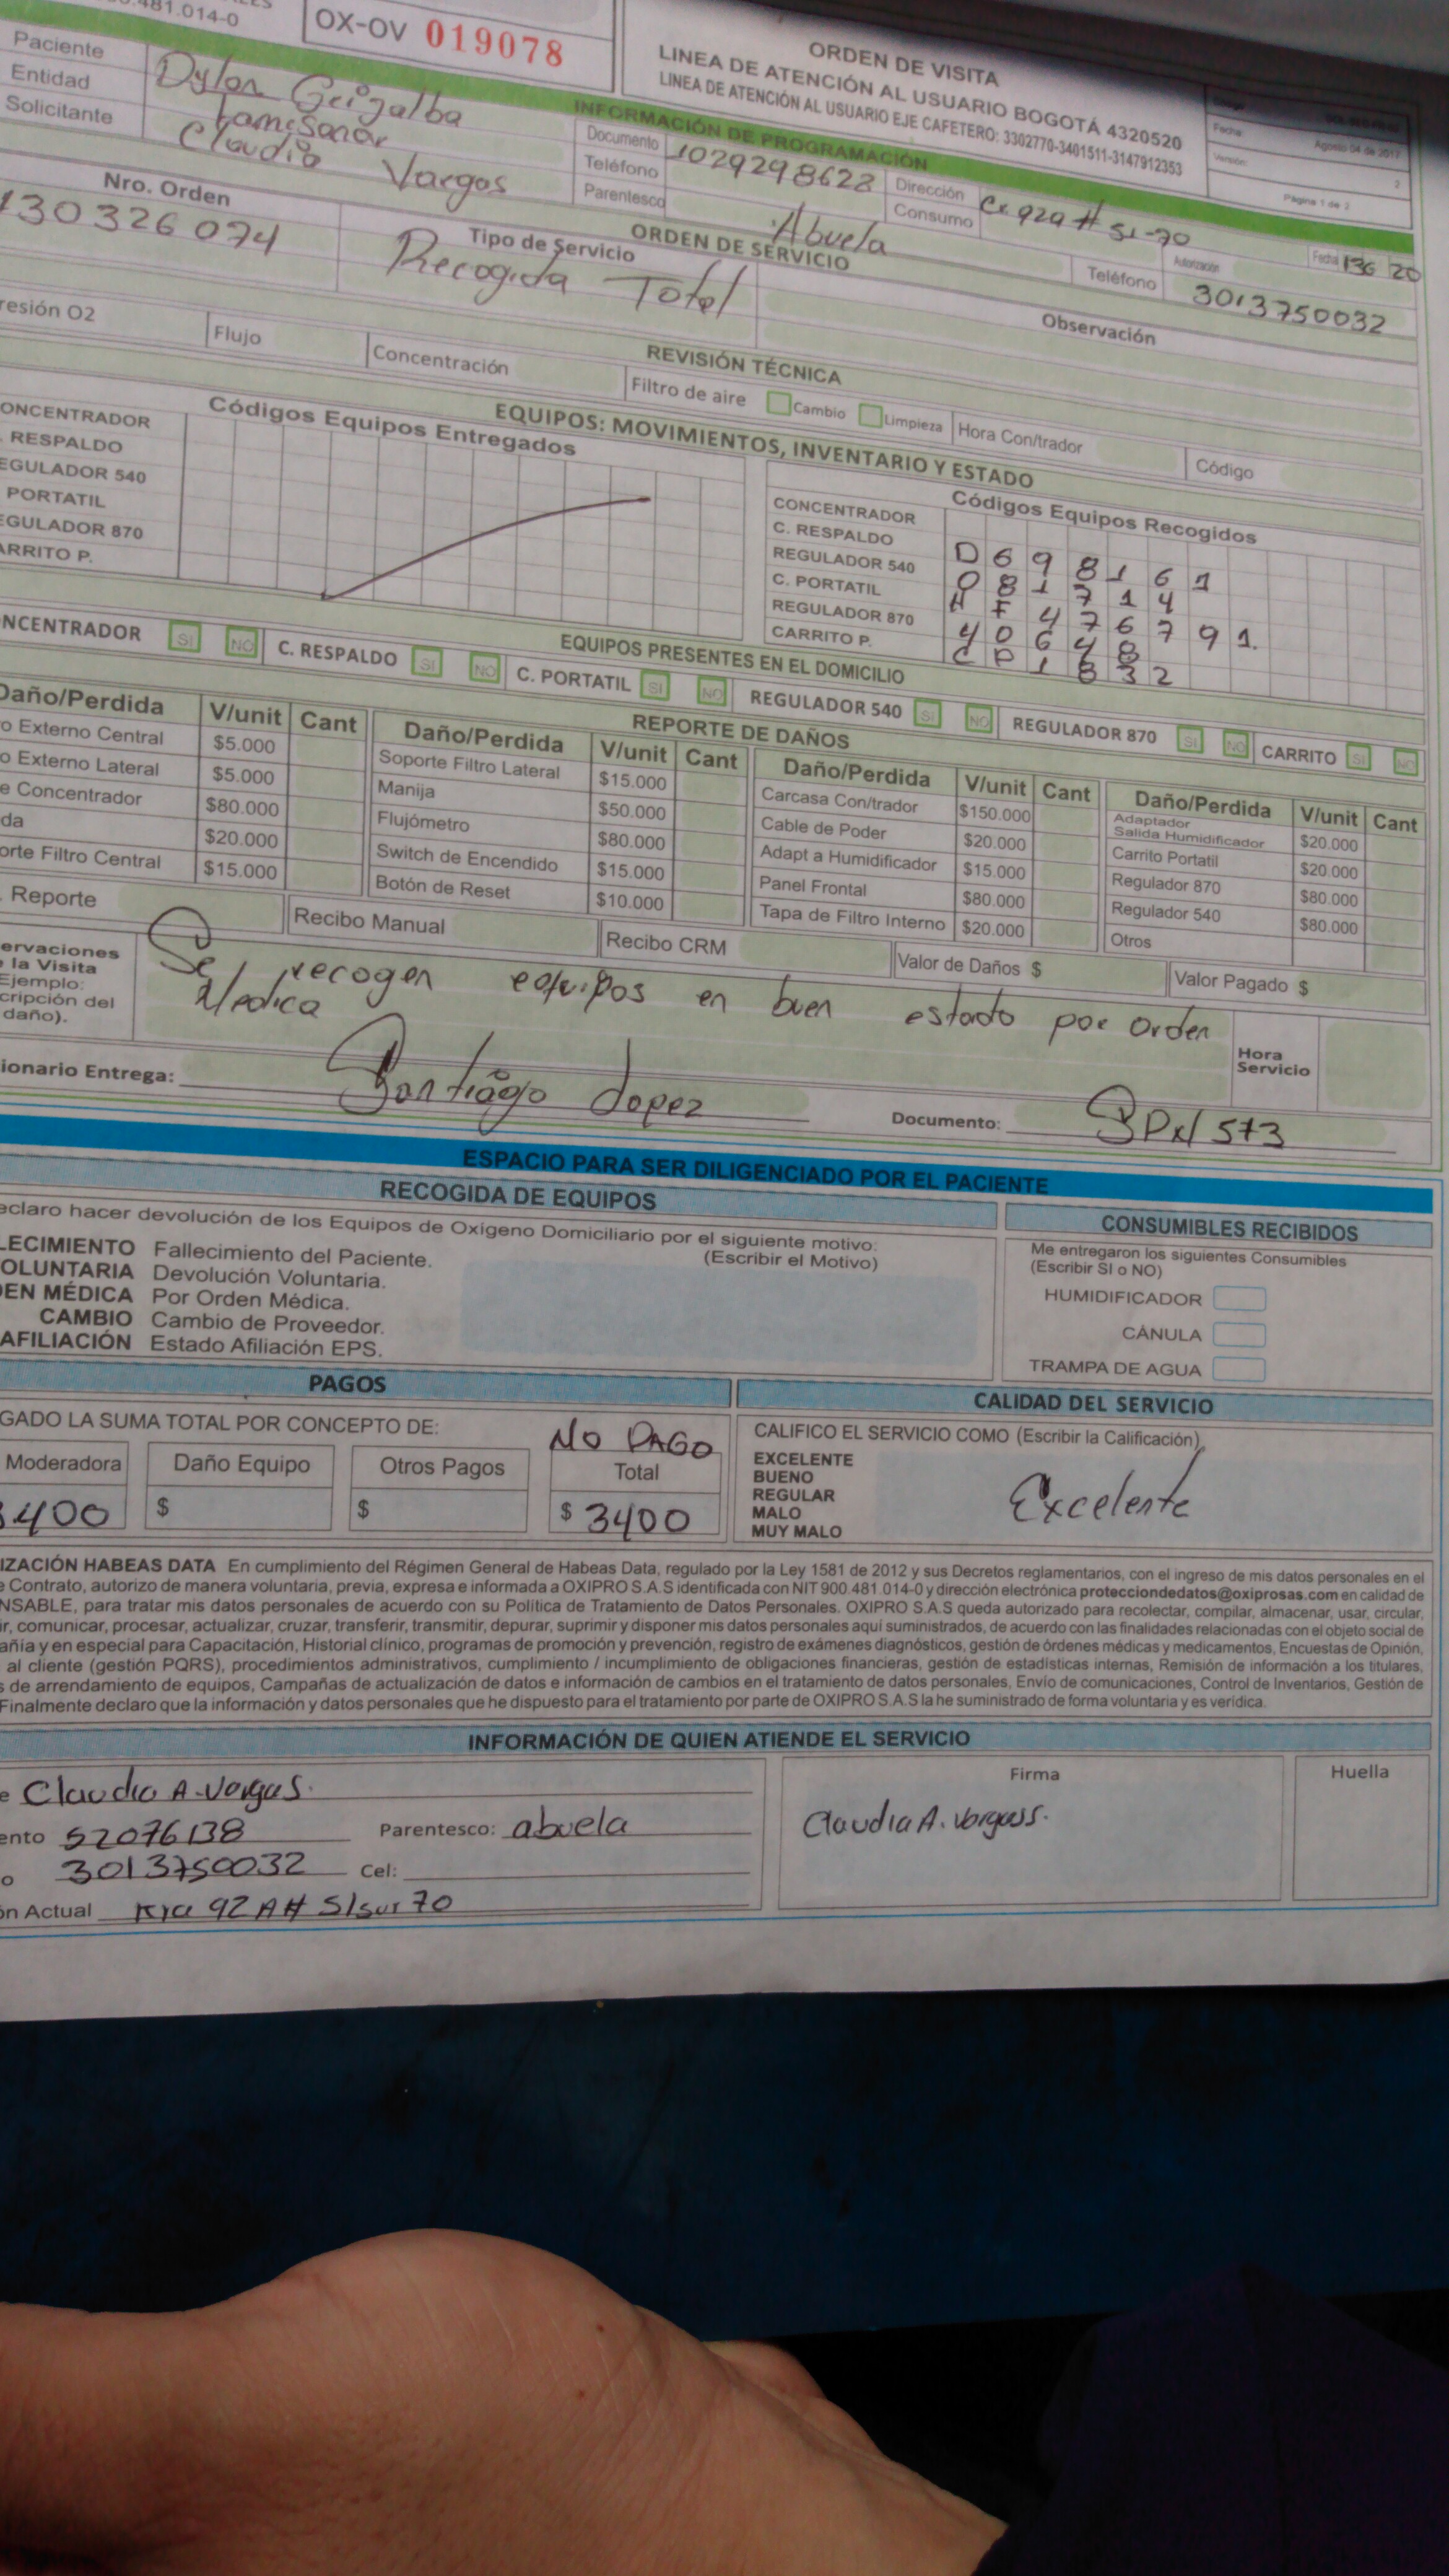 481.014-0
OX-OV 019078
ORDEN DE VISITA
LINEA DE ATENCIÓN AL USUARIO BOGOTÁ 4320520
LINEA DE ATENCIÓN AL USUARIO EJE CAFETERO: 3302770-3401511-3147912353
Fecha Agosto 04 de 2017
Versión: 2
Página 1 de 2
INFORMACIÓN DE PROGRAMACIÓN
Paciente Dylan Grijalba Documento 1029298628 Dirección Cr 92a # 51-70
Entidad Famisanar Teléfono Consumo Autorización Fecha 136 20
Solicitante Claudia Vargas Parentesco Abuela Teléfono 3013750032
ORDEN DE SERVICIO
Nro. Orden Tipo de Servicio Observación
130326074 Recogida Total
REVISIÓN TÉCNICA
resión O2 Flujo Concentración Filtro de aire Cambio Limpieza Hora Con/trador Código
EQUIPOS: MOVIMIENTOS, INVENTARIO Y ESTADO
Códigos Equipos Entregados Códigos Equipos Recogidos
ONCENTRADOR CONCENTRADOR D698161
. RESPALDO C. RESPALDO 081714
EGULADOR 540 REGULADOR 540 HF476791.
PORTATIL C. PORTATIL 40648
EGULADOR 870 REGULADOR 870 CP1832
ARRITO P. CARRITO P.
EQUIPOS PRESENTES EN EL DOMICILIO
NCENTRADOR SI NO C. RESPALDO SI NO C. PORTATIL SI NO REGULADOR 540 SI NO REGULADOR 870 SI NO CARRITO SI NO
REPORTE DE DAÑOS
Daño/Perdida V/unit Cant Daño/Perdida V/unit Cant Daño/Perdida V/unit Cant Daño/Perdida V/unit Cant
o Externo Central $5.000 Soporte Filtro Lateral $15.000 Carcasa Con/trador $150.000 Adaptador Salida Humidificador $20.000
o Externo Lateral $5.000 Manija $50.000 Cable de Poder $20.000 Carrito Portatil $20.000
e Concentrador $80.000 Flujómetro $80.000 Adapt a Humidificador $15.000 Regulador 870 $80.000
da $20.000 Switch de Encendido $15.000 Panel Frontal $80.000 Regulador 540 $80.000
orte Filtro Central $15.000 Botón de Reset $10.000 Tapa de Filtro Interno $20.000 Otros
. Reporte Recibo Manual Recibo CRM Valor de Daños $ Valor Pagado $
ervaciones
e la Visita
Ejemplo:
cripción del
daño).
Se recogen equipos en buen estado por orden
Medica
Hora Servicio
ionario Entrega: Santiago Lopez Documento:
ESPACIO PARA SER DILIGENCIADO POR EL PACIENTE
RECOGIDA DE EQUIPOS
eclaro hacer devolución de los Equipos de Oxígeno Domiciliario por el siguiente motivo:
(Escribir el Motivo)
LECIMIENTO Fallecimiento del Paciente.
OLUNTARIA Devolución Voluntaria.
DEN MÉDICA Por Orden Médica.
CAMBIO Cambio de Proveedor.
AFILIACIÓN Estado Afiliación EPS.
CONSUMIBLES RECIBIDOS
Me entregaron los siguientes Consumibles
(Escribir SI o NO)
HUMIDIFICADOR
CÁNULA
TRAMPA DE AGUA
PAGOS
GADO LA SUMA TOTAL POR CONCEPTO DE: NO PAGO
Moderadora Daño Equipo Otros Pagos Total
3400 $ $ $ 3400
CALIDAD DEL SERVICIO
CALIFICO EL SERVICIO COMO (Escribir la Calificación)
EXCELENTE
BUENO
REGULAR
MALO
MUY MALO
Excelente
IZACIÓN HABEAS DATA En cumplimiento del Régimen General de Habeas Data, regulado por la Ley 1581 de 2012 y sus Decretos reglamentarios, con el ingreso de mis datos personales en el
e Contrato, autorizo de manera voluntaria, previa, expresa e informada a OXIPRO S.A.S identificada con NIT 900.481.014-0 y dirección electrónica protecciondedatos@oxiprosas.com en calidad de
NSABLE, para tratar mis datos personales de acuerdo con su Política de Tratamiento de Datos Personales. OXIPRO S.A.S queda autorizado para recolectar, compilar, almacenar, usar, circular,
ir, comunicar, procesar, actualizar, cruzar, transferir, transmitir, depurar, suprimir y disponer mis datos personales aquí suministrados, de acuerdo con las finalidades relacionadas con el objeto social de
añia y en especial para Capacitación, Historial clínico, programas de promoción y prevención, registro de exámenes diagnósticos, gestión de órdenes médicas y medicamentos, Encuestas de Opinión,
al cliente (gestión PQRS), procedimientos administrativos, cumplimiento / incumplimiento de obligaciones financieras, gestión de estadísticas internas, Remisión de información a los titulares,
s de arrendamiento de equipos, Campañas de actualización de datos e información de cambios en el tratamiento de datos personales, Envío de comunicaciones, Control de Inventarios, Gestión de
Finalmente declaro que la información y datos personales que he dispuesto para el tratamiento por parte de OXIPRO S.A.S la he suministrado de forma voluntaria y es verídica.
INFORMACIÓN DE QUIEN ATIENDE EL SERVICIO
e Claudia A. Vargas. Firma Huella
ento 52076138 Parentesco: abuela Claudia A. Vargas.
o 3013750032 Cel:
ón Actual Kra 92 A # 51sur 70